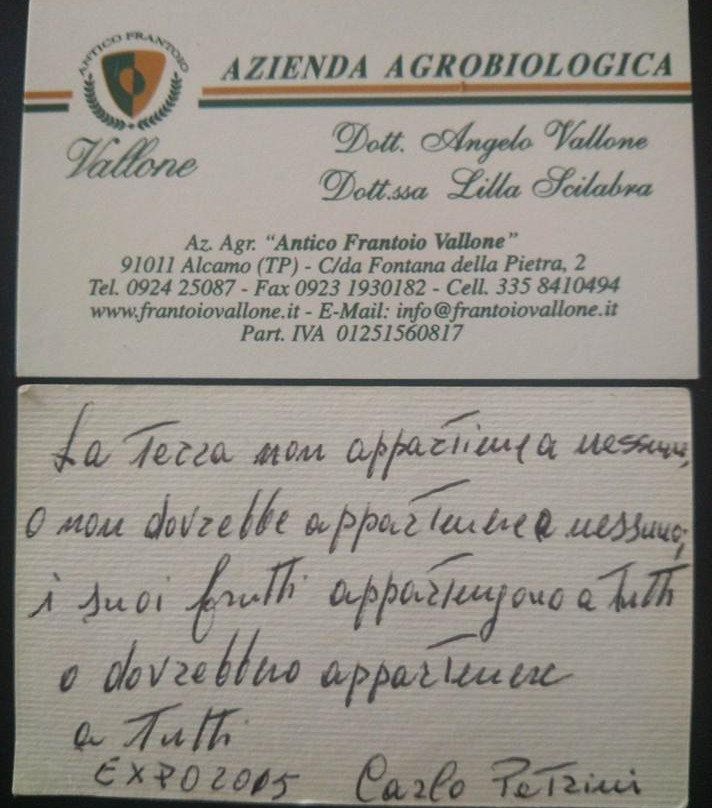 ANTICO FRANTOIO
Vallone
AZIENDA AGROBIOLOGICA
Dott. Angelo Vallone
Dott.ssa Lilla Scilabra
Az. Agr. “Antico Frantoio Vallone”
91011 Alcamo (TP) - C/da Fontana della Pietra, 2
Tel. 0924 25087 - Fax 0923 1930182 - Cell. 335 8410494
www.frantoiovallone.it - E-Mail: info@frantoiovallone.it
Part. IVA 01251560817
La Terra non appartiene a nessuno,
o non dovrebbe appartenere a nessuno;
i suoi frutti appartengono a tutti
o dovrebbero appartenere
a Tutti
EXPO2015 Carlo Petrini